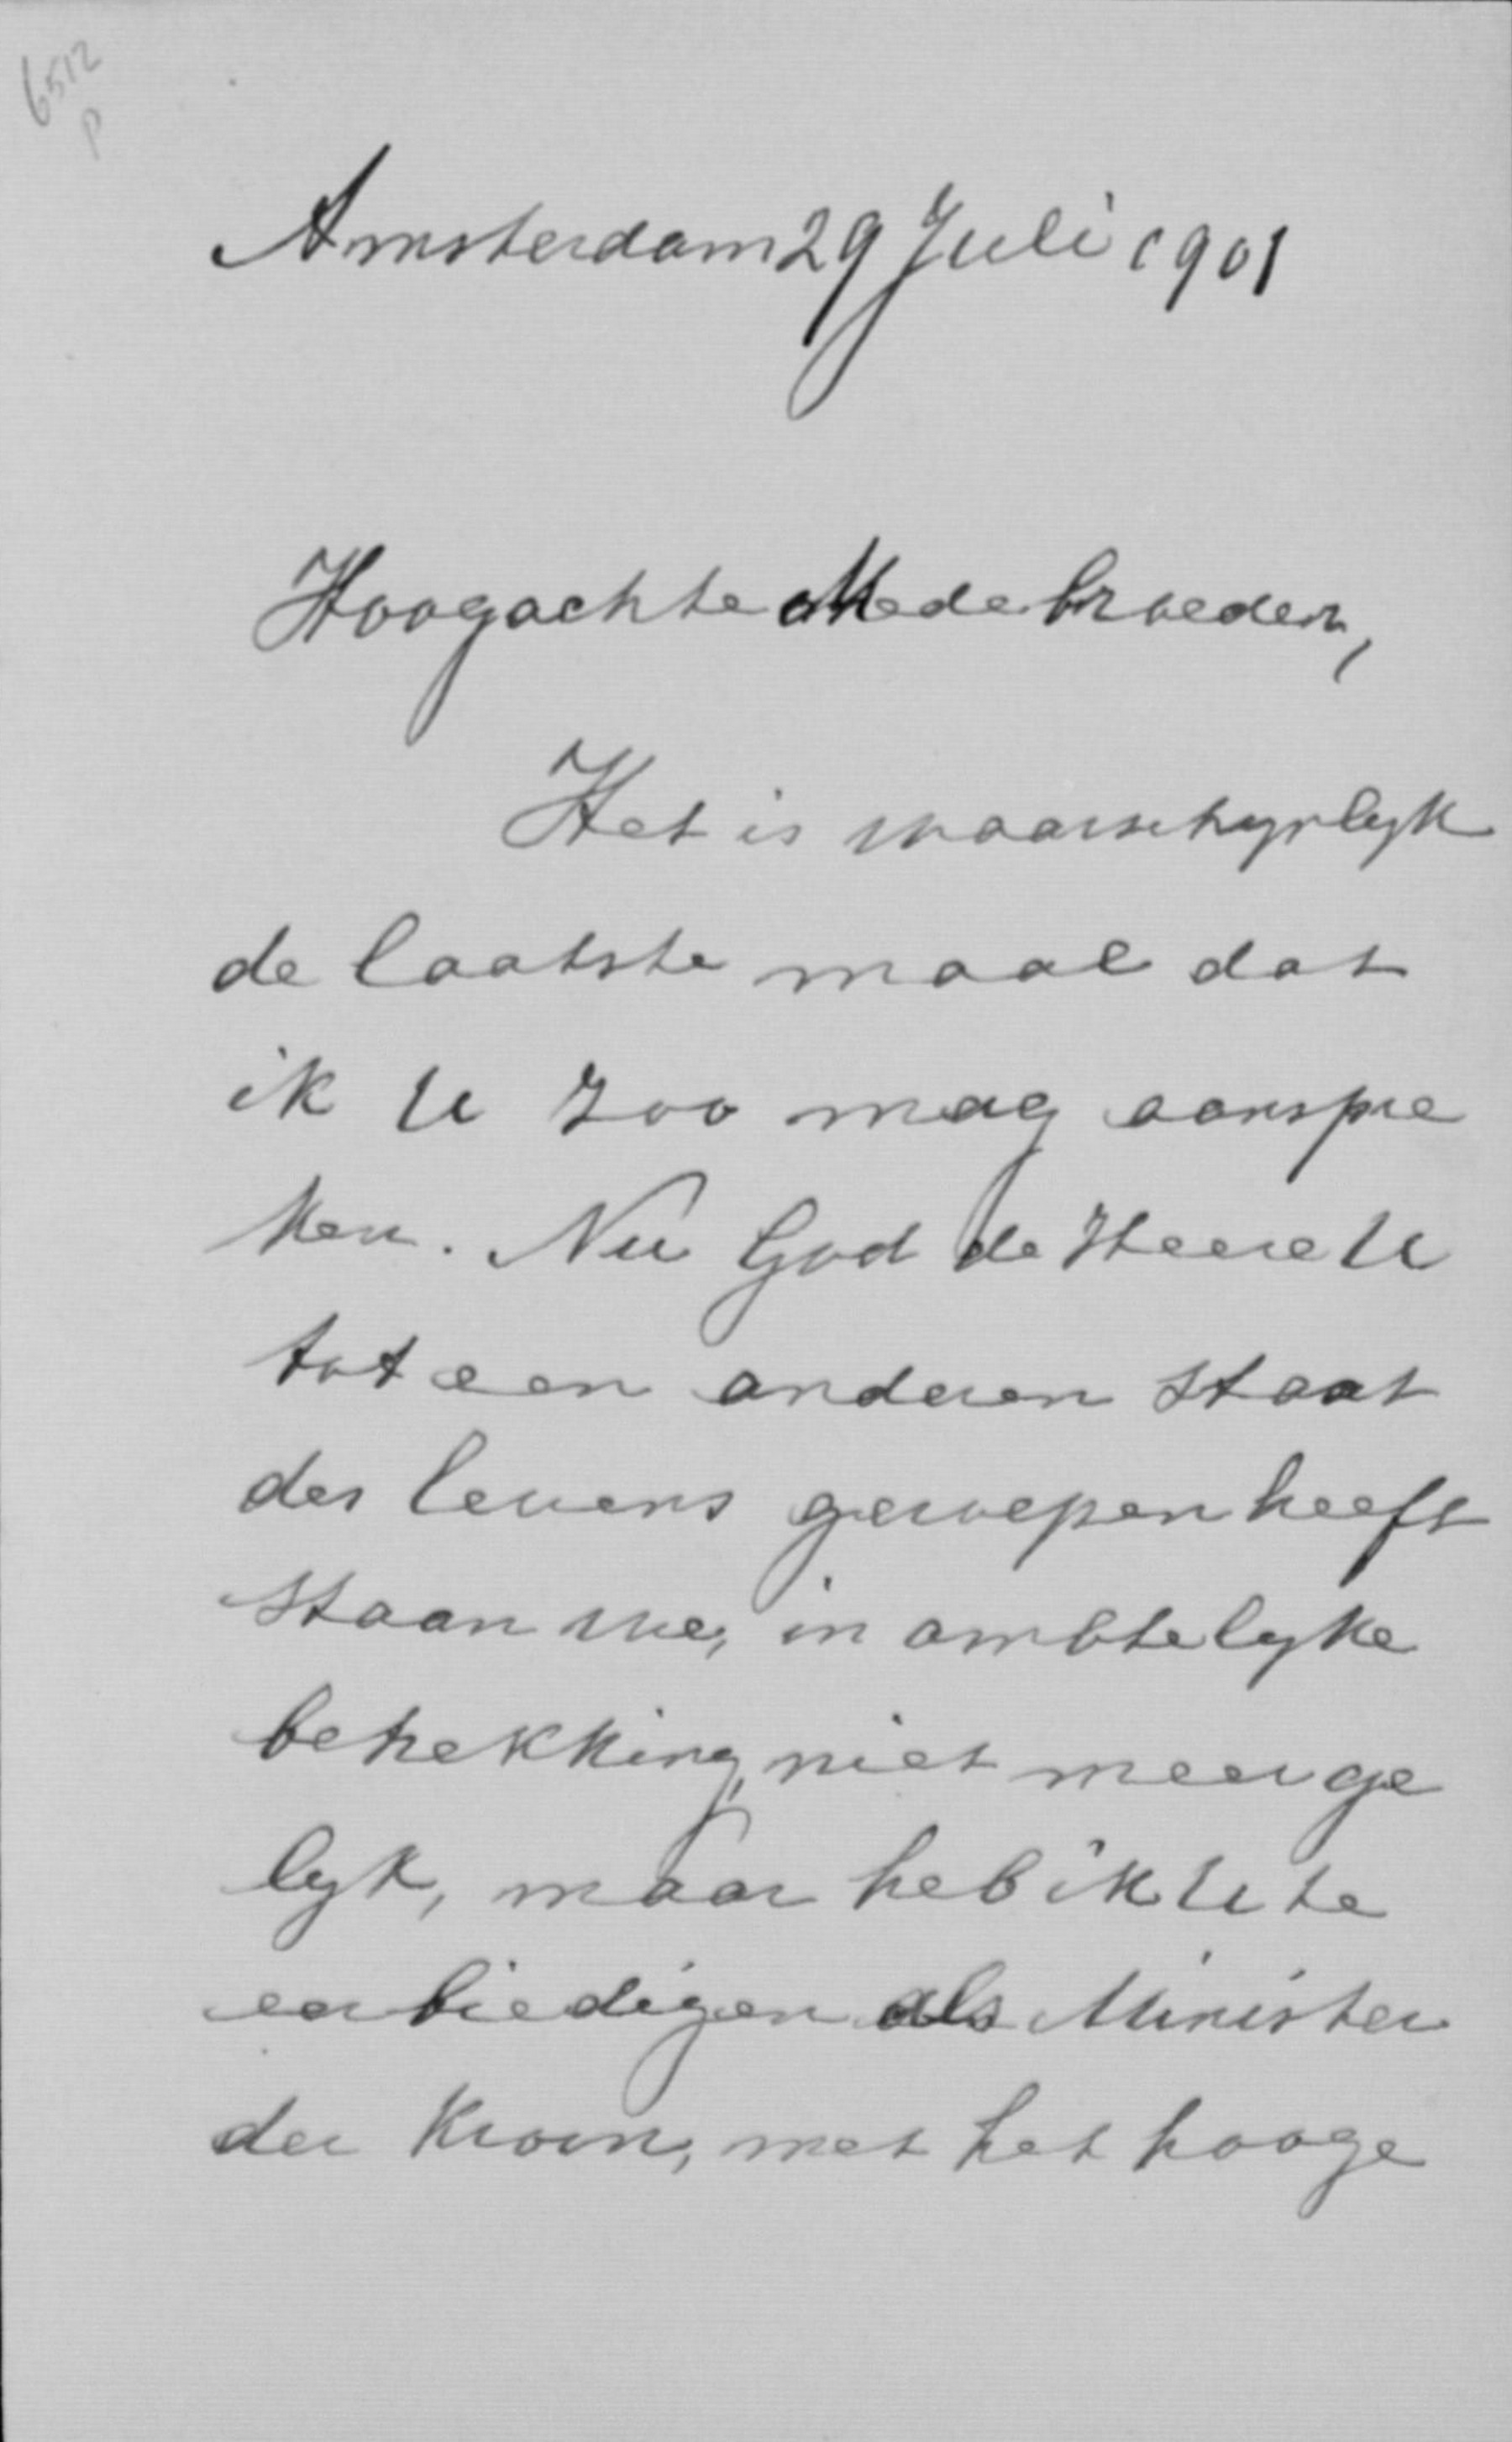 6512
P
Amsterdam 29 Juli 1901
Hoogachte Medebroeder,
Het is waarschynlyk
de laatste maal dat
ik U zoo mag aanspre
ken. Nu God de Heere U
tot een anderen staat
des levens geroepen heeft
staan we, in ambtelyke
betrekking, niet meer ge
lyk, maar heb ik U te
eerbiedigen als Minister
der Kroon, met het hooge